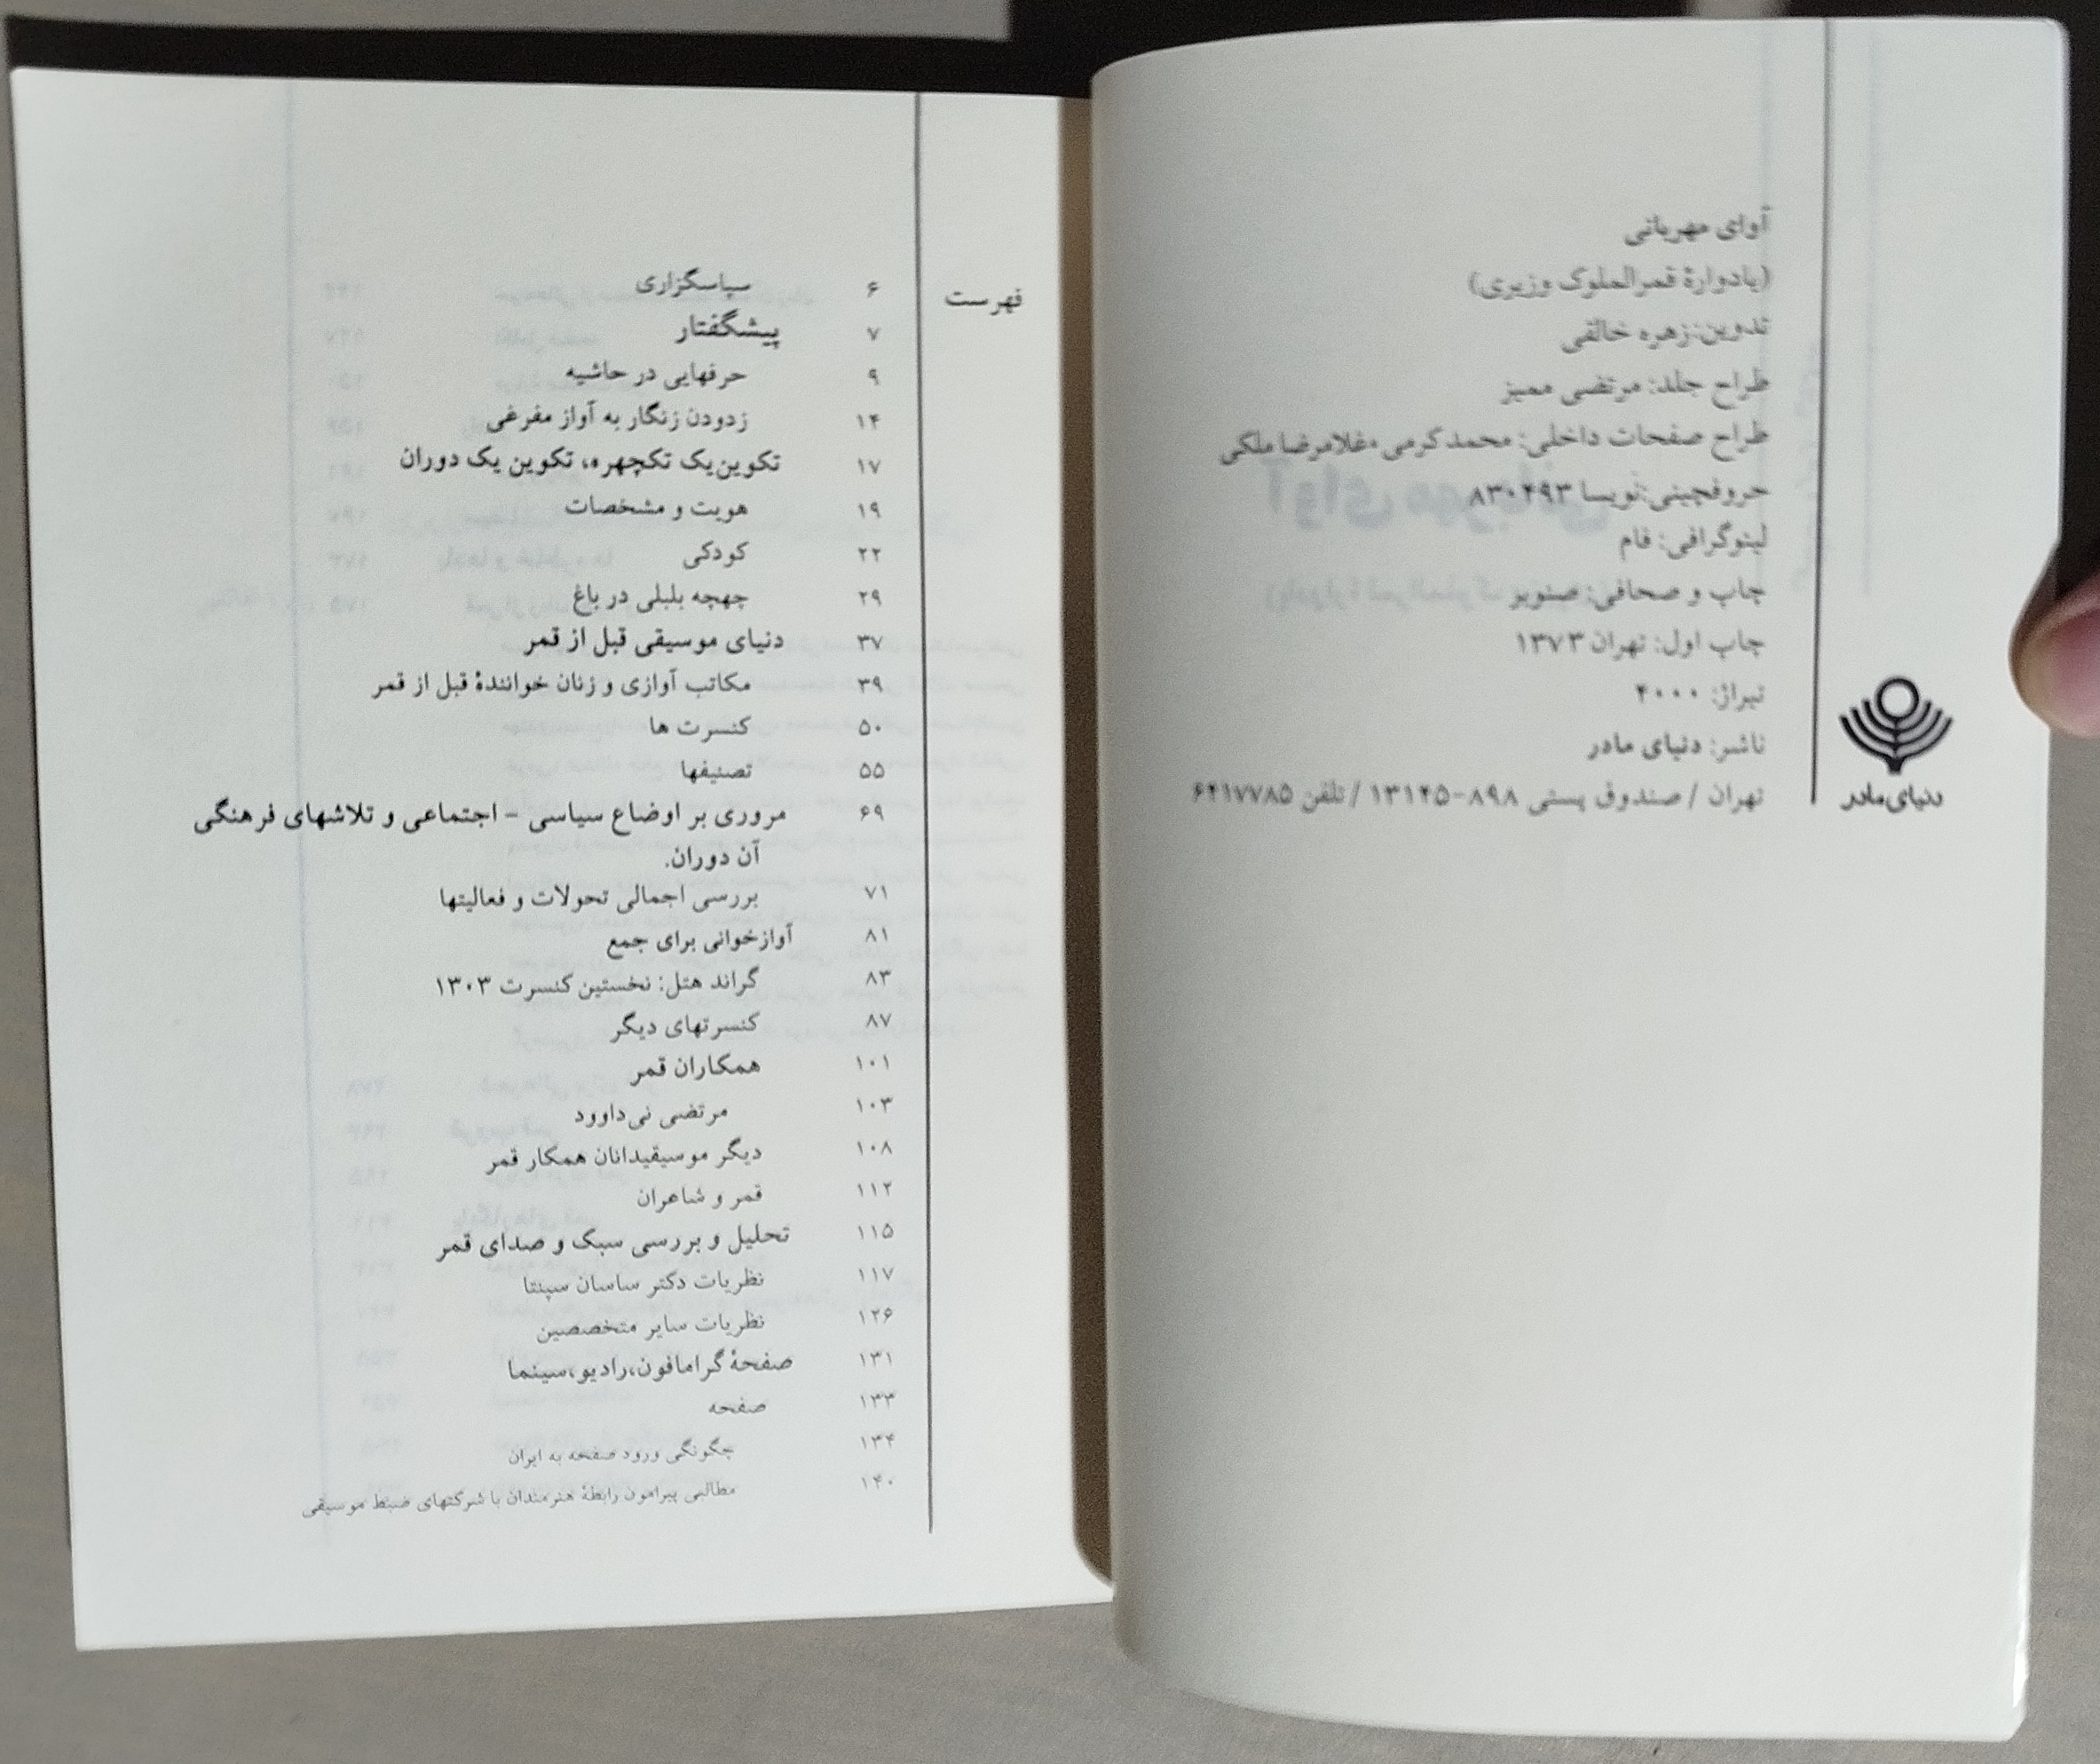 آوای مهربانی
(یادوارۀ قمرالملوک وزیری)
تدوین:زهره خالقی
طراح جلد: مرتضی ممیز
طراح صفحات داخلی: محمدکرمی، غلامرضا ملکی
حروفچینی:نویسا ۸۳۰۴۹۳
لیتوگرافی: فام
چاپ و صحافی: صنوبر
چاپ اول: تهران ۱۳۷۳
تیراژ: ۴۰۰۰
ناشر: دنیای مادر
تهران / صندوق پستی ۸۹۸-۱۳۱۴۵ / تلفن ۶۴۱۷۷۸۵
دنیای‌مادر
فهرست
۶ سپاسگزاری
۷ پیشگفتار
۹ حرفهایی در حاشیه
۱۴ زدودن زنگار به آواز مفرغی
۱۷ تکوین‌یک تکچهره، تکوین یک دوران
۱۹ هویت و مشخصات
۲۲ کودکی
۲۹ چهچه بلبلی در باغ
۳۷ دنیای موسیقی قبل از قمر
۳۹ مکاتب آوازی و زنان خوانندۀ قبل از قمر
۵۰ کنسرت ها
۵۵ تصنیفها
۶۹ مروری بر اوضاع سیاسی - اجتماعی و تلاشهای فرهنگی
آن دوران.
۷۱ بررسی اجمالی تحولات و فعالیتها
۸۱ آوازخوانی برای جمع
۸۳ گراند هتل: نخستین کنسرت ۱۳۰۳
۸۷ کنسرتهای دیگر
۱۰۱ همکاران قمر
۱۰۳ مرتضی نی‌داوود
۱۰۸ دیگر موسیقیدانان همکار قمر
۱۱۲ قمر و شاعران
۱۱۵ تحلیل و بررسی سبک و صدای قمر
۱۱۷ نظریات دکتر ساسان سپنتا
۱۲۶ نظریات سایر متخصصین
۱۳۱ صفحۀ گرامافون،رادیو،سینما
۱۳۳ صفحه
۱۳۴ چگونگی ورود صفحه به ایران
۱۴۰ مطالبی پیرامون رابطۀ هنرمندان با شرکتهای ضبط موسیقی